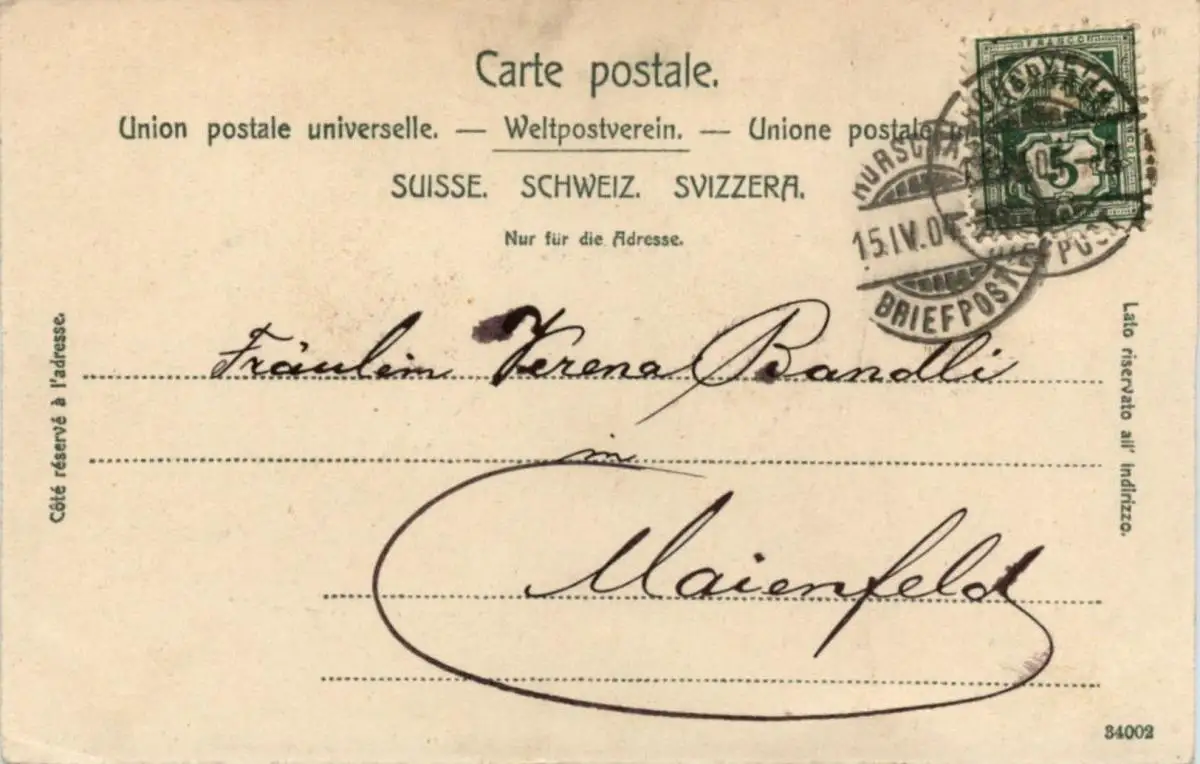 Carte postale.
Union postale universelle. — Weltpostverein. — Unione postale
SUISSE. SCHWEIZ. SVIZZERA.
Nur für die Adresse.
FRANCO
5
15.IV.04
BRIEFPOST
Côté réservé à l'adresse.
Lato riservato all' indirizzo.
Fräulein Verena Bandli
in
Maienfeld
34002